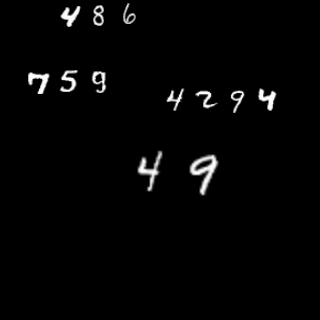 486
759
4294
49